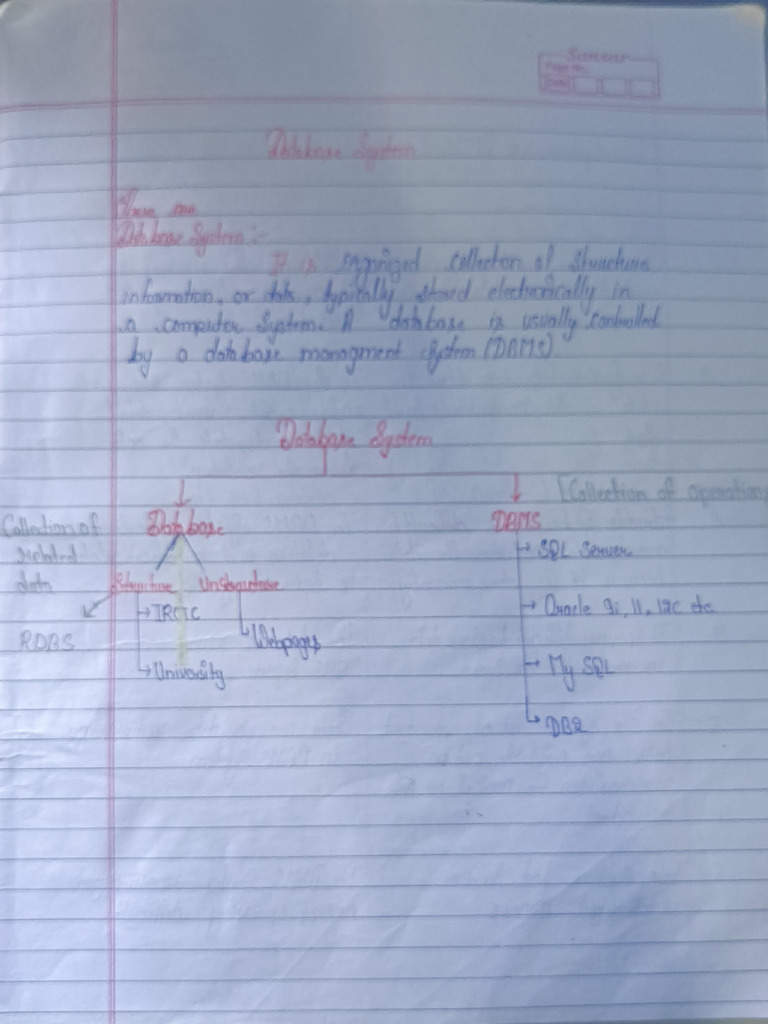 Page No.
Date
Database System
Database System :-
It is orgnized collection of structure
information, or data, typically stored electronically in
a computer System. A database is usually controlled
by a database managment system (DBMS)
Database System
[Collection of operation
Collection of related data
Database
DBMS
Structure
Unstructure
RDBS
IRCTC
University
Webpages
SQL Server
Oracle 9i, 11, 12c etc
My SQL
DB2